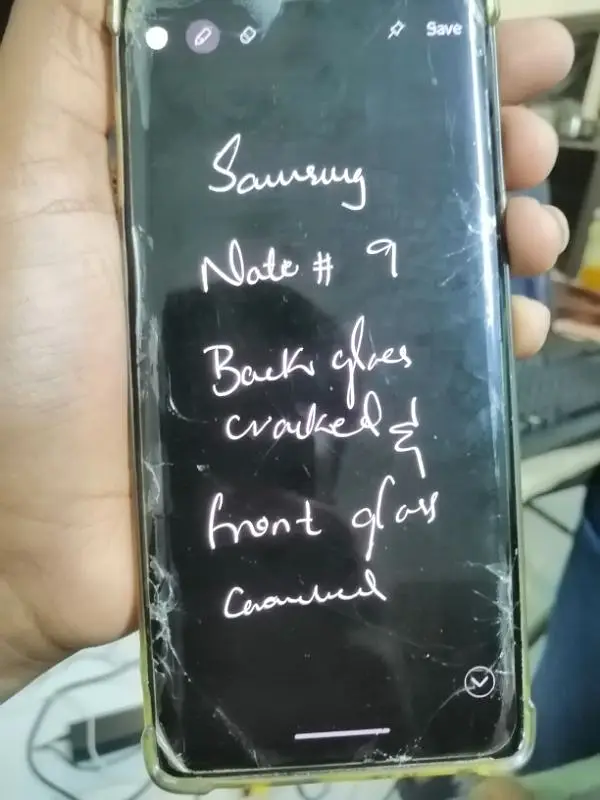 Save
Samsung
Note # 9
Back glass
cracked &
front glass
Cracked